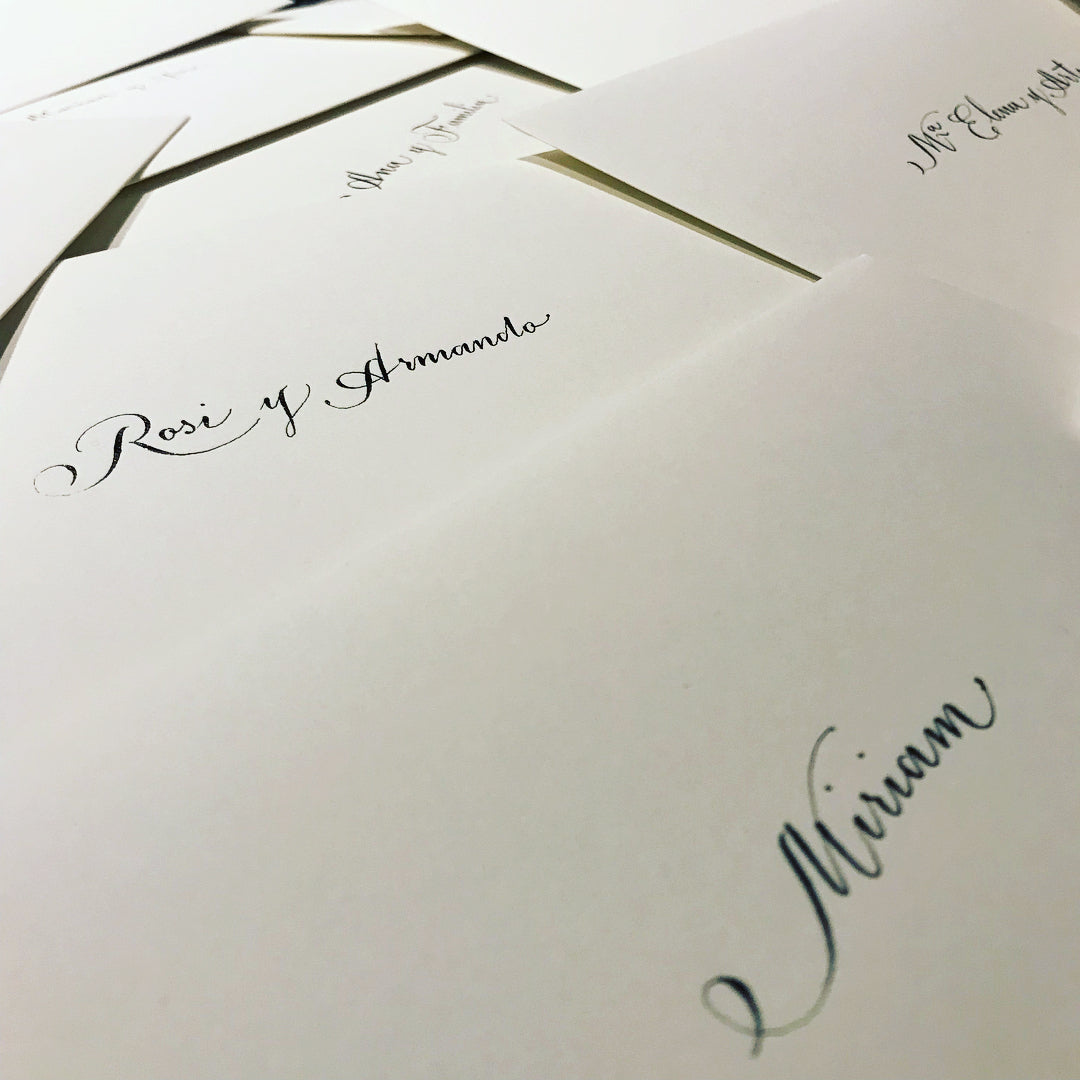 Ana y Familia
Mª Elena y
Rosi y Armando
Miriam